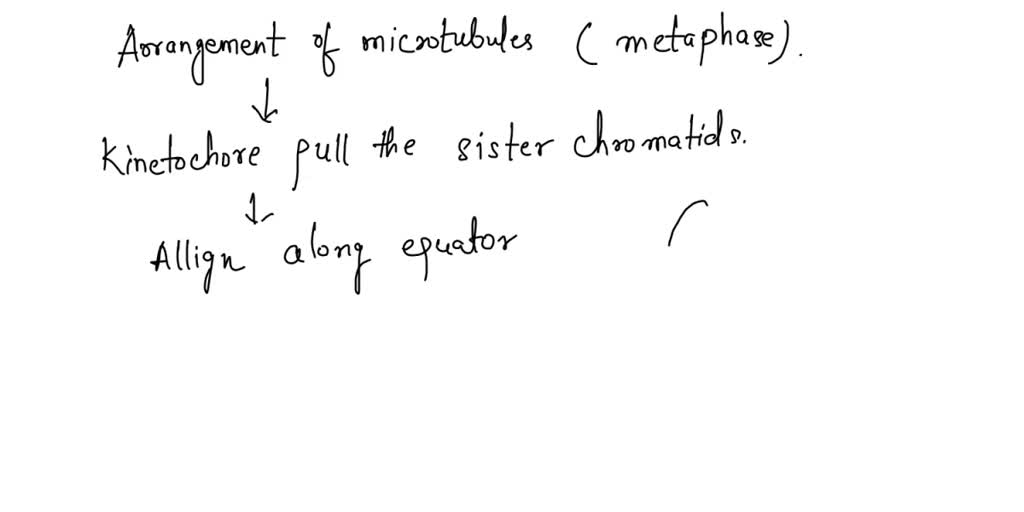 Arrangement of microtubules (metaphase).
↓
Kinetochore pull the sister chromatids.
↓
Allign along equator (